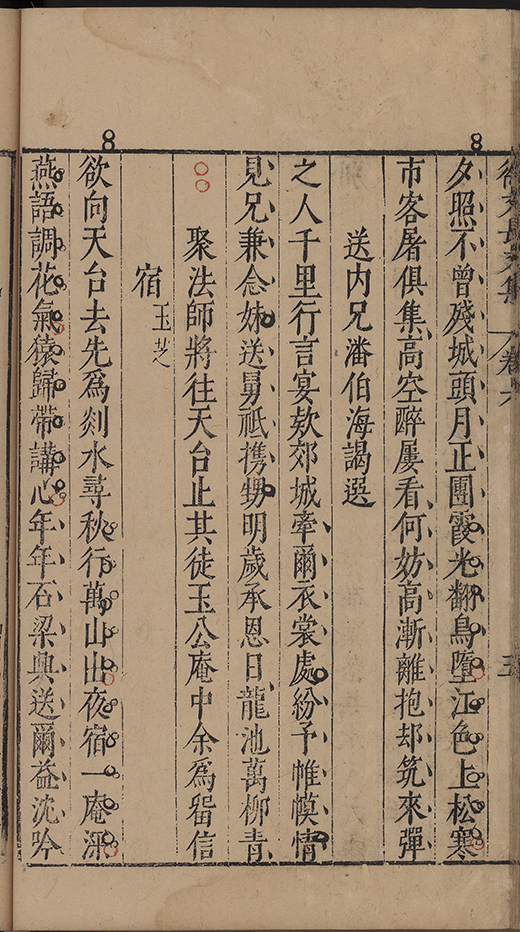 徐文長文集 卷六 五
夕照不曾殘城頭月正團霞光翻鳥墮江色上松寒
市客屠俱集高空醉屢看何妨高漸離抱却筑來彈
送內兄潘伯海謁選
之人千里行言宴欬郊城牽爾衣裳處紛予帷幙情
見兄兼念妹送舅祗携甥明歲承恩日龍池萬柳青
聚法師將往天台止其徒玉公庵中余爲畱信
宿玉芝
欲向天台去先爲剡水尋秋行萬山出夜宿一庵深
燕語調花氣猿歸帶講心年年石梁興送爾益沈吟